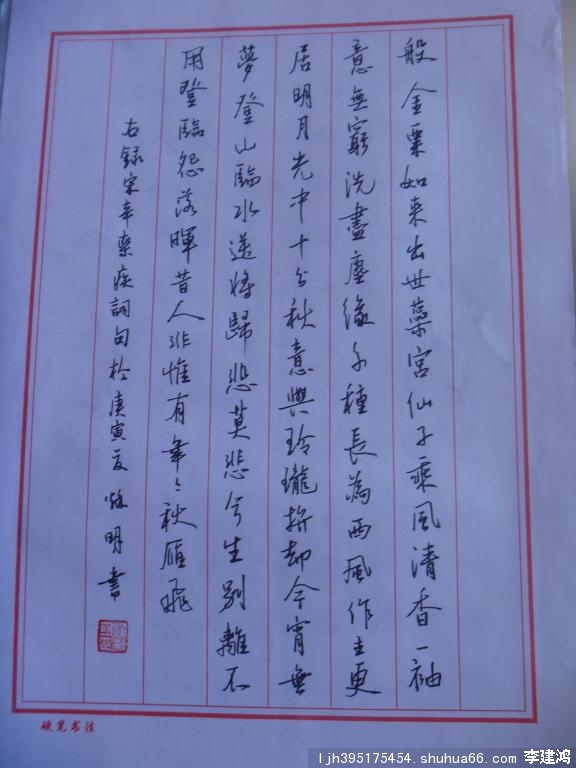 般金粟如来出世蘂宮仙子乘風清香一袖
意無窮洗盡塵緣千種長為西風作主更
居明月光中十分秋意與玲瓏拚却今宵無
夢登山臨水送將歸悲莫悲兮生別離不
用登臨怨落暉昔人非惟有年々秋雁飛
右録宋辛棄疾詞句於庚寅夏明書
硬笔书法
ljh395175454. shuhua66. com 李建鸿